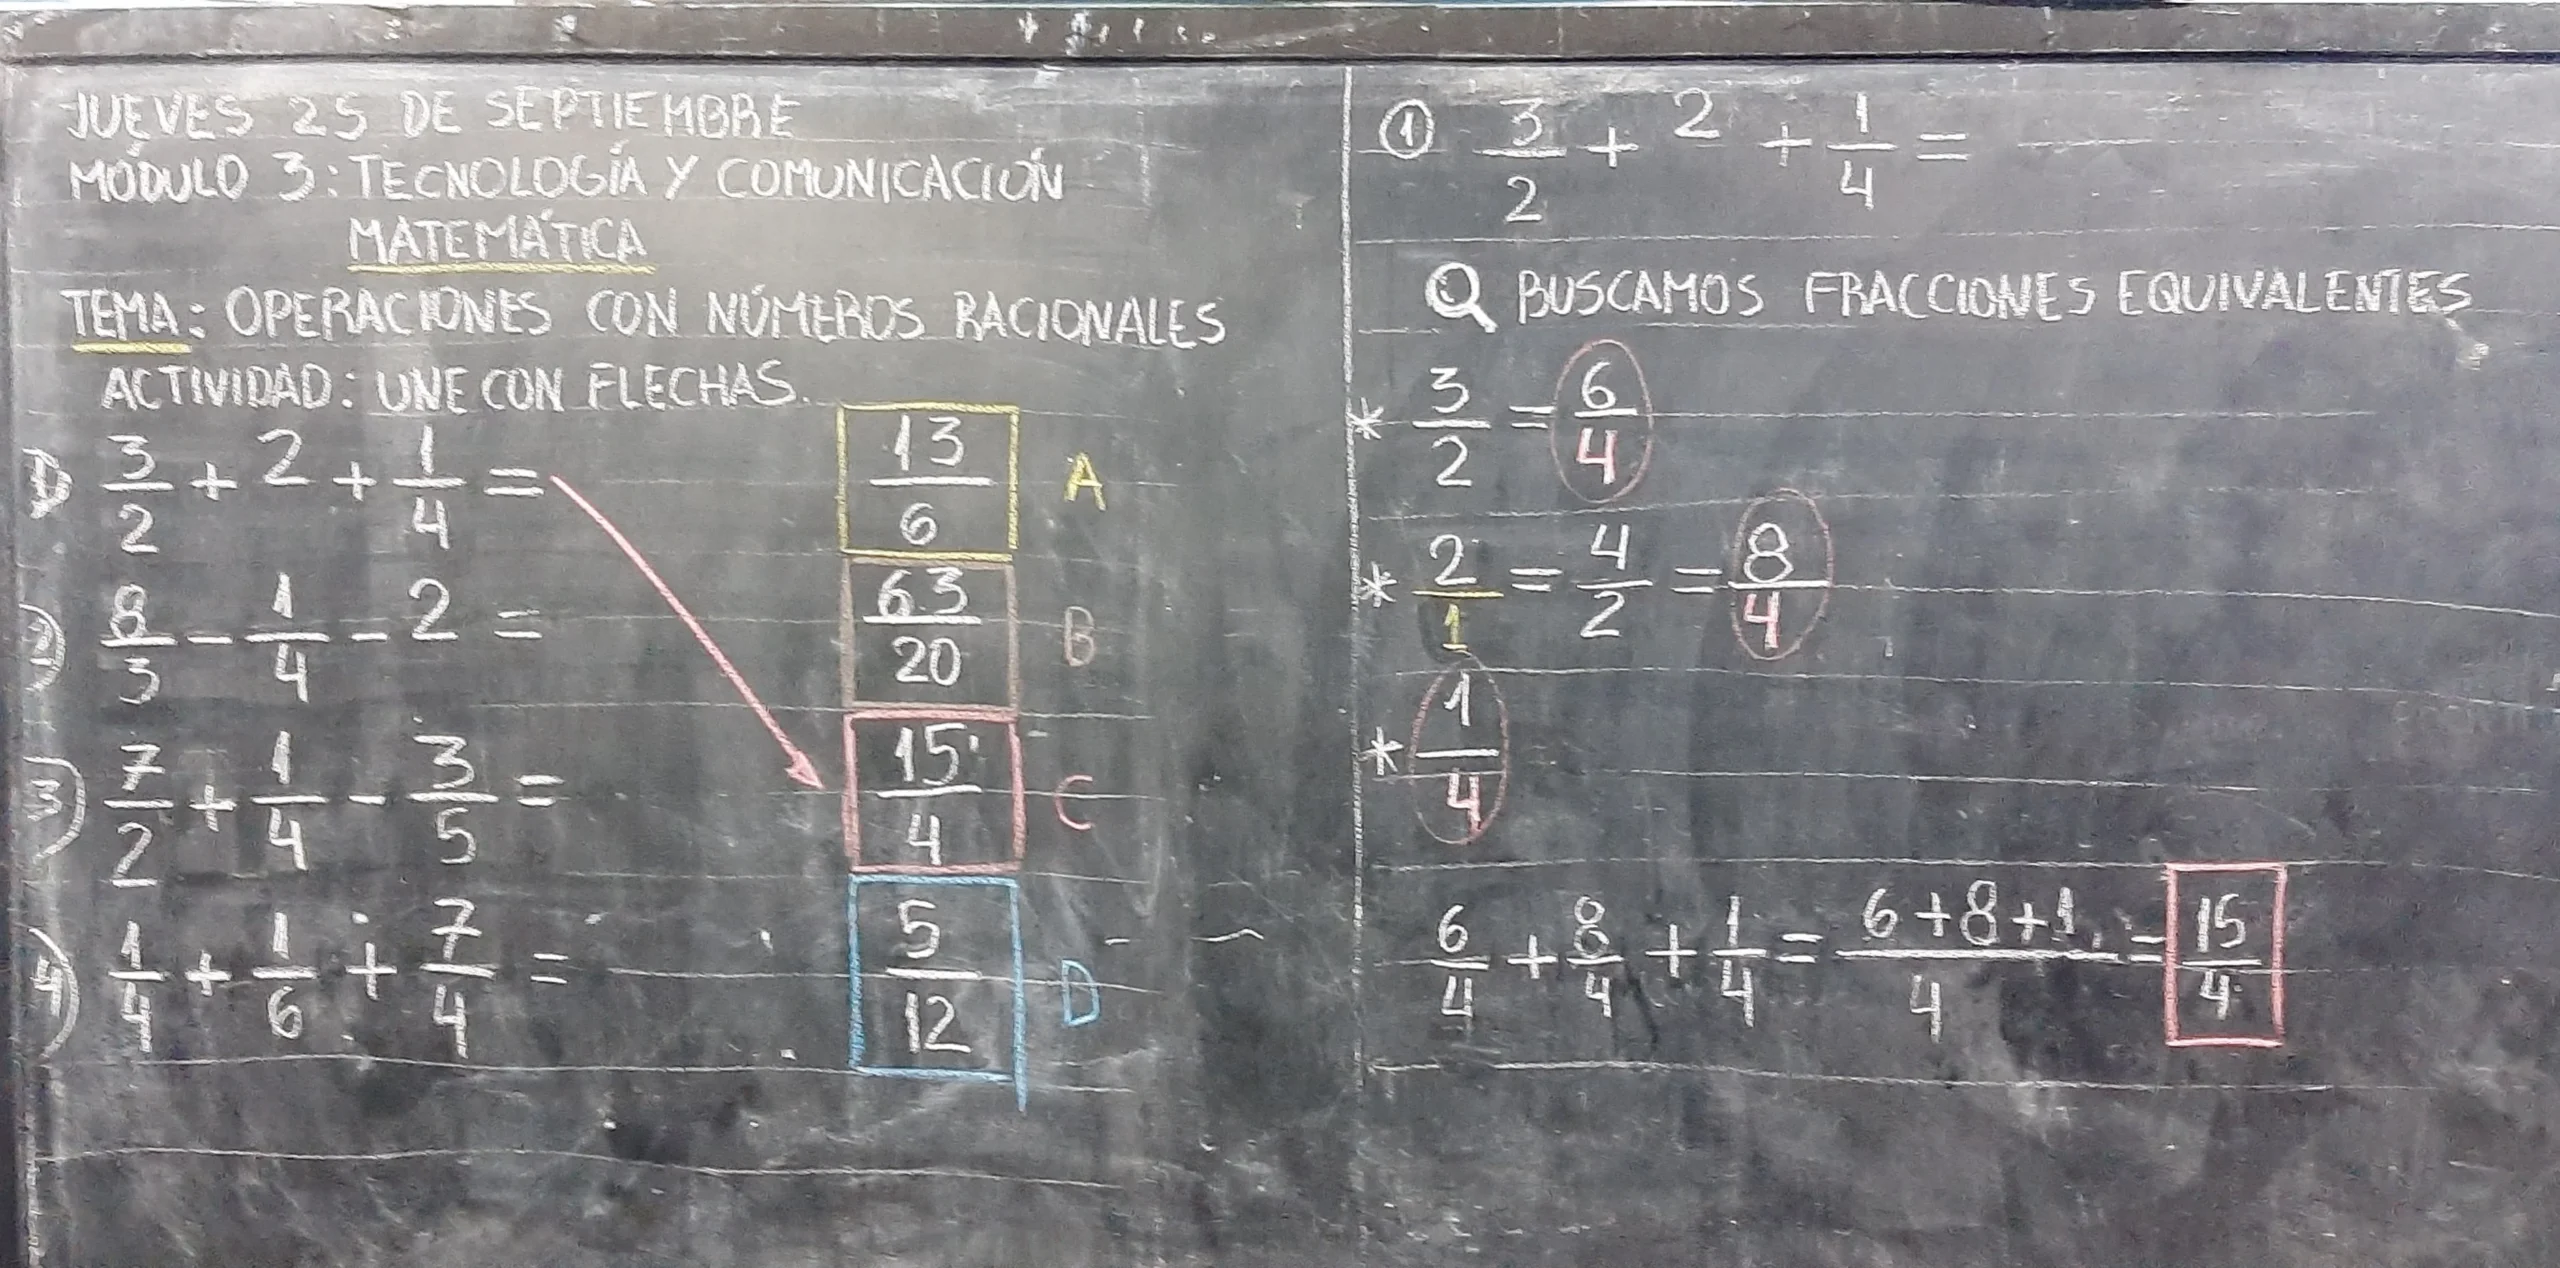 JUEVES 25 DE SEPTIEMBRE
MÓDULO 3: TECNOLOGÍA Y COMUNICACIÓN
MATEMÁTICA
TEMA: OPERACIONES CON NÚMEROS RACIONALES
ACTIVIDAD: UNE CON FLECHAS.
1) 3/2 + 2 + 1/4 =
2) 8/3 - 1/4 - 2 =
3) 7/2 + 1/4 - 3/5 =
4) 1/4 + 1/6 + 7/4 =
13/6 A
63/20 B
15/4 C
5/12 D
① 3/2 + 2 + 1/4 =
BUSCAMOS FRACCIONES EQUIVALENTES
* 3/2 = 6/4
* 2/1 = 4/2 = 8/4
* 1/4
6/4 + 8/4 + 1/4 = 6+8+1/4 = 15/4